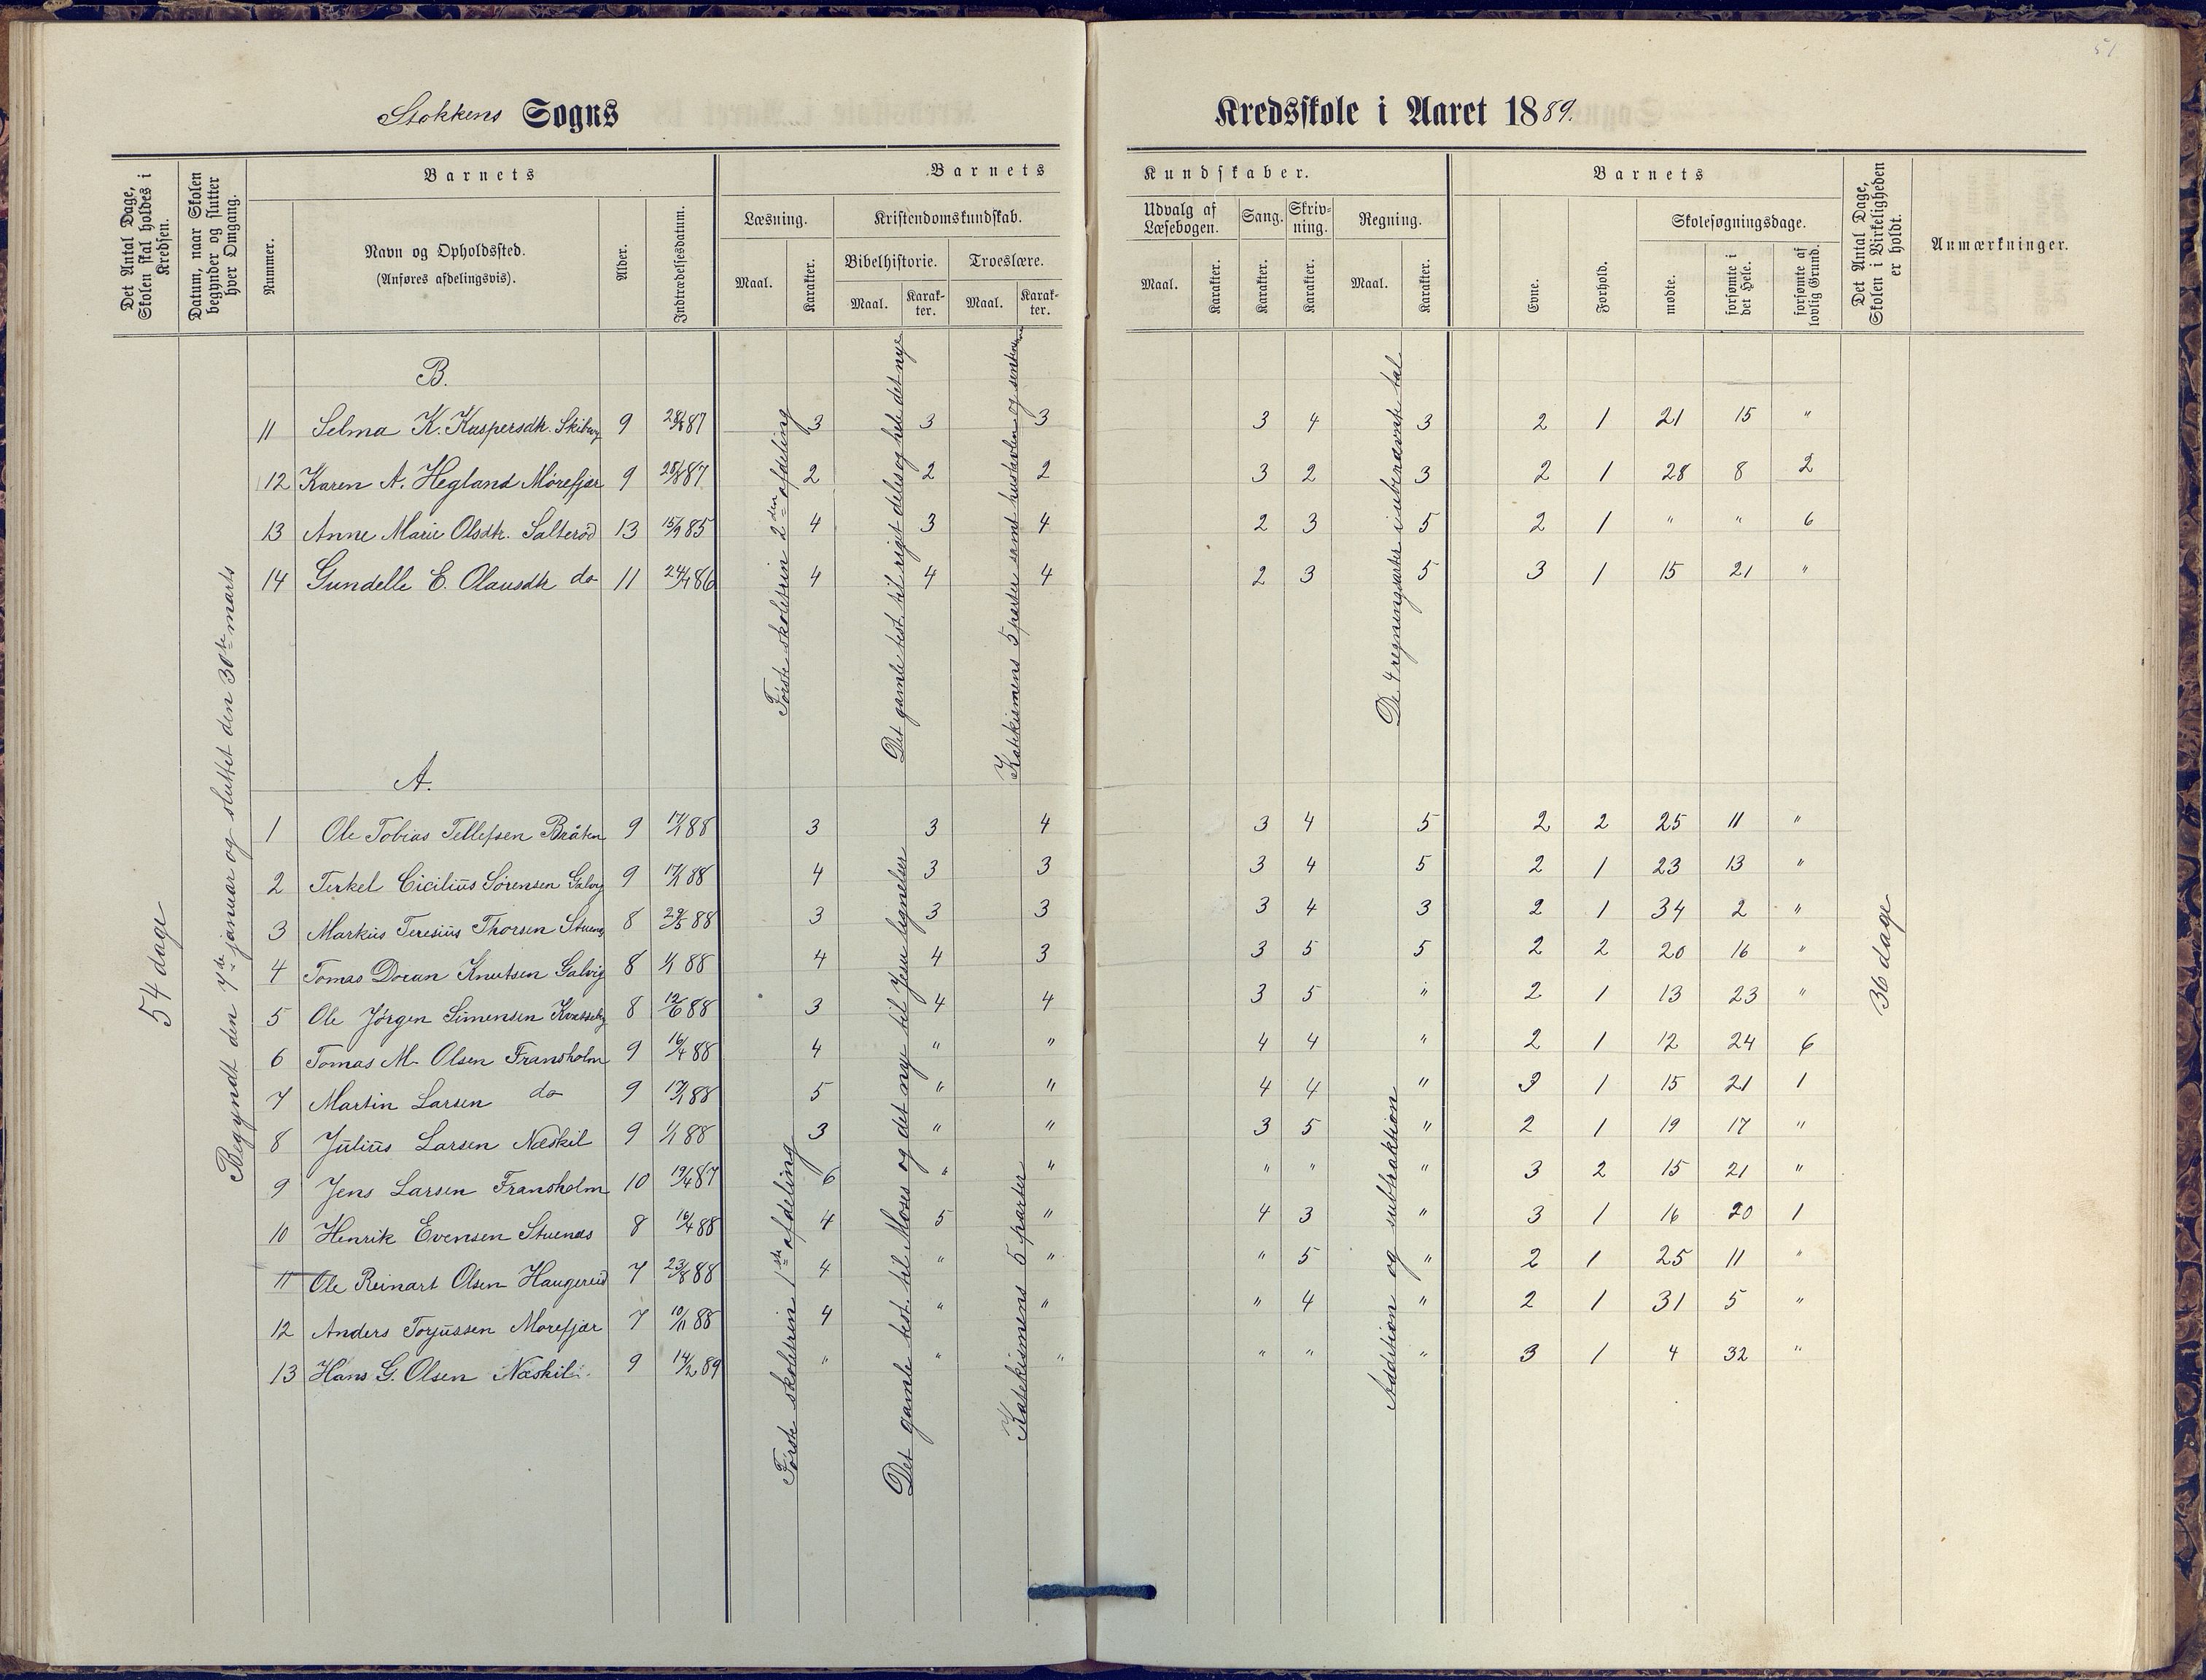 51
Stokkens Sogns Kredsskole i Aaret 1889.
Det Antal Dage, Skolen skal holdes i Kredsen.
Datum, naar Skolen begynder og slutter hver Omgang.
Barnets
Nummer.
Navn og Opholdssted.
(Anføres afdelingsvis).
Alder.
Indtrædelsesdatum.
Barnets Kundskaber.
Læsning.
Maal. Karakter.
Kristendomskundskab.
Bibelhistorie. Troeslære.
Maal. Karakter. Maal. Karakter.
Udvalg af Læsebogen.
Maal. Karakter.
Sang. Karakter.
Skrivning. Karakter.
Regning.
Maal. Karakter.
Barnets
Evne.
Forhold.
Skolesøgningsdage.
mødte.
forsømte i det Hele.
forsømte af lovlig Grund.
Det Antal Dage, Skolen i Virkeligheden er holdt.
Anmærkninger.
54 dage
Begyndt den 7de januar og sluttet den 30te marts
B.
11 Selma K. Kaspersdtr. 9 87 3 3 3 3 4 3 2 1 21 15 "
12 Karen A. Hegland Mørefjær 9 87 2 2 2 3 2 3 2 1 28 8 2
13 Anne Marie Olsdtr. Salterød 13 85 4 3 4 2 3 5 2 1 " " 6
14 Gundelle E. Olausdtr do 11 86 4 4 4 2 3 5 3 1 15 21 "
Første skoletrin 2den afdeling
Det gamle test. til riget deles og hele det nye
Katekismens 5 parter samt hustavlen og
De 4 regningsarter i ubenævnte tal
A.
1 Ole Tobias Tellefsen Bråten 9 88 3 3 4 3 4 5 2 2 25 11 "
2 Terkel Cicilius Sørensen Galvig 9 88 4 3 3 3 4 5 2 1 23 13 "
3 Markus Teresius Thorsen Stuenes 8 88 3 3 3 3 4 3 2 1 34 2 "
4 Tomas Doran Knutsen Galvig 8 1/1 88 4 4 3 3 5 5 2 2 20 16 "
5 Ole Jørgen Simensen 8 12/6 88 3 4 4 3 5 " 2 1 13 23 "
6 Tomas M. Olsen Fransholm 9 16/4 88 4 " " 4 4 " 2 1 12 24 6
7 Martin Larsen do 9 88 5 " " 4 4 " 3 1 15 21 1
8 Julius Larsen Næskil 9 1/1 88 3 " " 3 5 " 2 1 19 17 "
9 Jens Larsen Fransholm 10 19/4 87 6 " " " " " 3 2 15 21 "
10 Henrik Evensen Stuenes 8 16/4 88 4 5 " 4 3 " 3 1 16 20 1
11 Ole Reinart Olsen Haugereid 7 23/8 88 4 " " " 5 " 2 1 25 11 "
12 Anders Torjussen Mørefjær 7 10/11 88 4 " " " 4 " 2 1 31 5 "
13 Hans G. Olsen Næskil 9 14/2 89 " " " " " " 3 1 4 32 "
Første skoletrin 1ste afdeling
Det gamle test. til Moses og det nye til Jesu lignelser
Katekismens 5 parter
Addition og subtraktion
36 dage